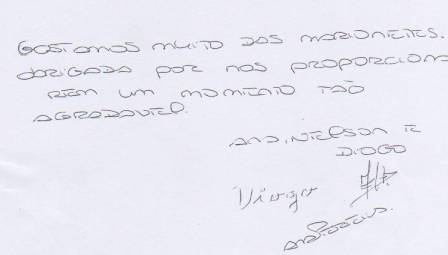 GOSTAMOS MUITO DAS MARIONETES.
OBRIGADA POR NOS PROPORCIONA
REM UM MOMENTO TÃO
AGRADAVEL.
ANA, NELSON E
DIOGO
Diogo